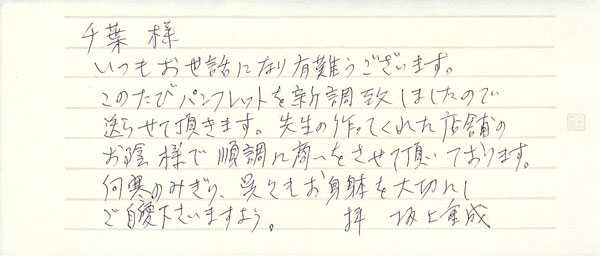 千葉 様
いつもお世話になり有難うございます。
このたびパンフレットを新調致しましたので
送らせて頂きます。先生の作ってくれた店舗の
お陰様で順調に商いをさせて頂いております。
何寒のみぎり、呉々もお身体を大切にし
ご自愛下さいますよう。 拝 坂上金成